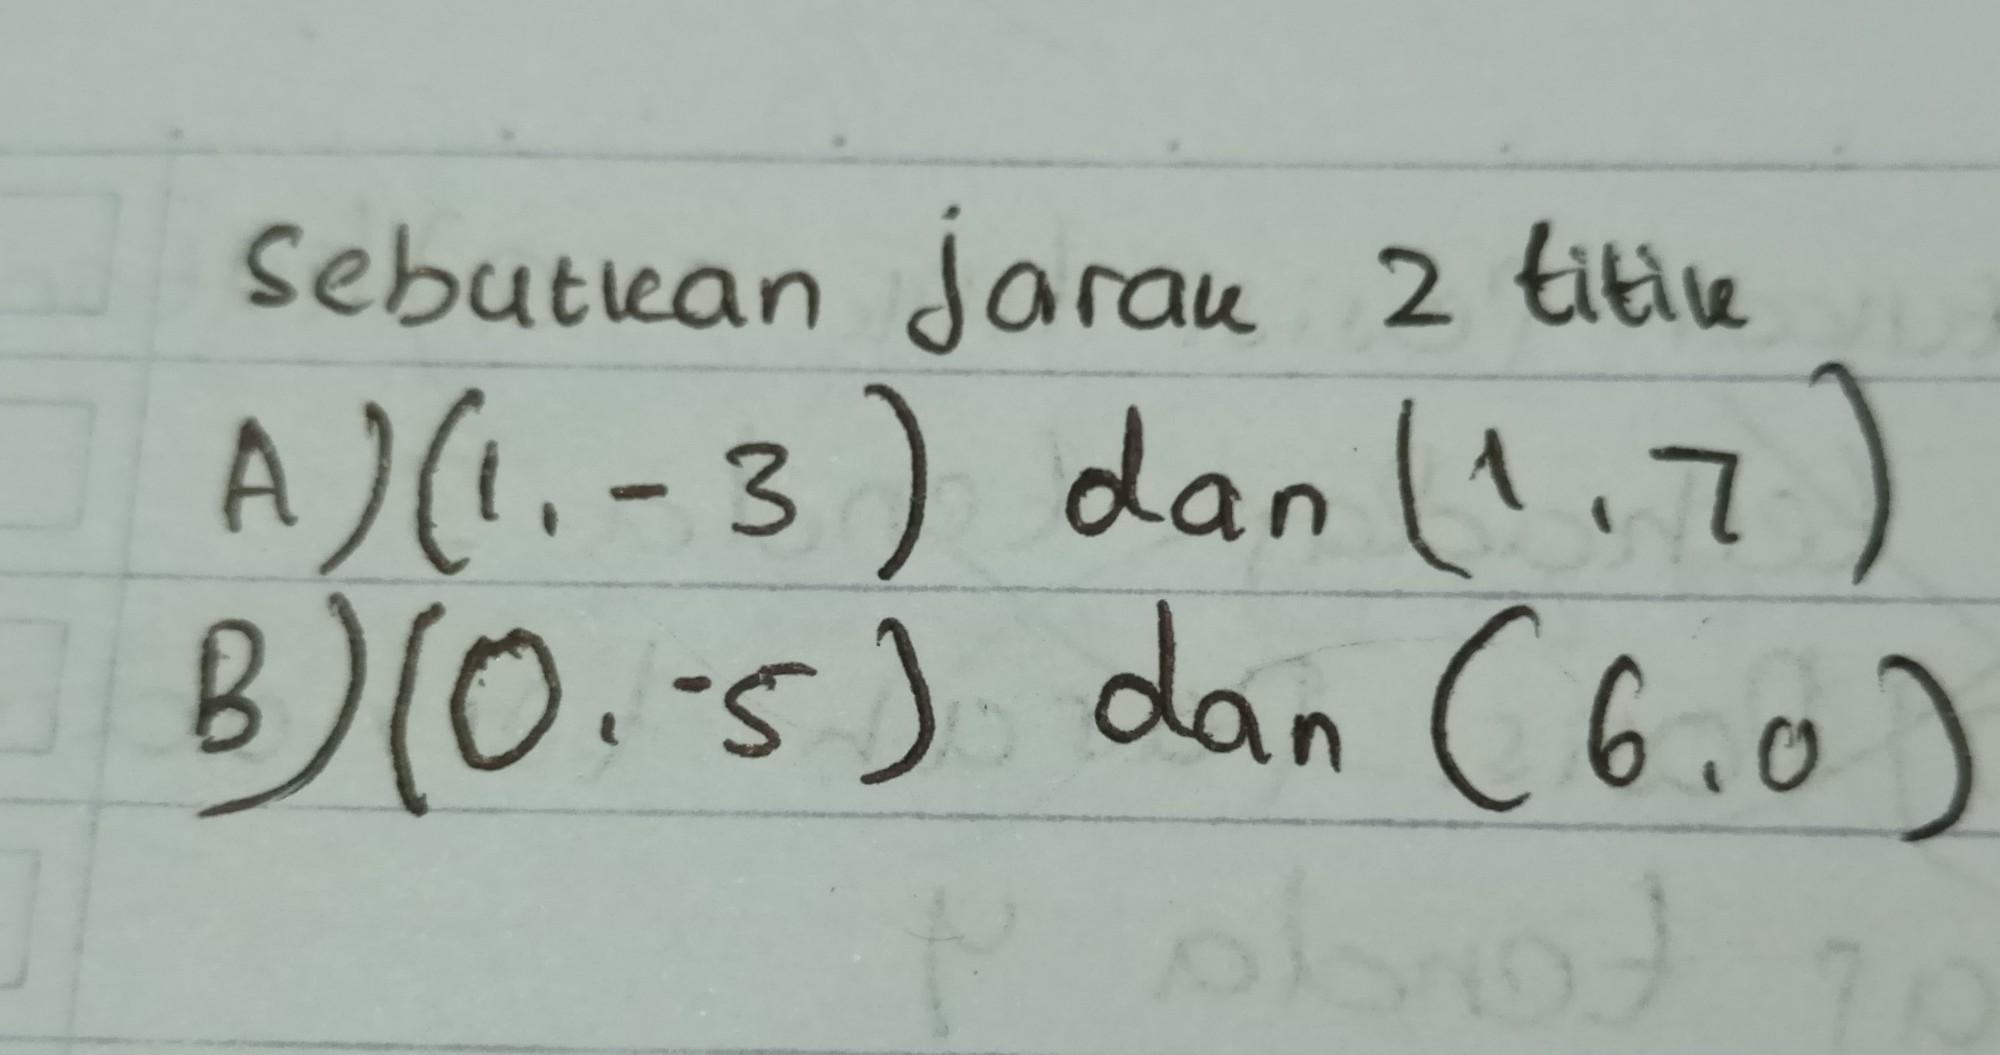 Sebutkan jarak 2 titik
A) (1, -3) dan (1, 7)
B) (0, -5) dan (6, 0)